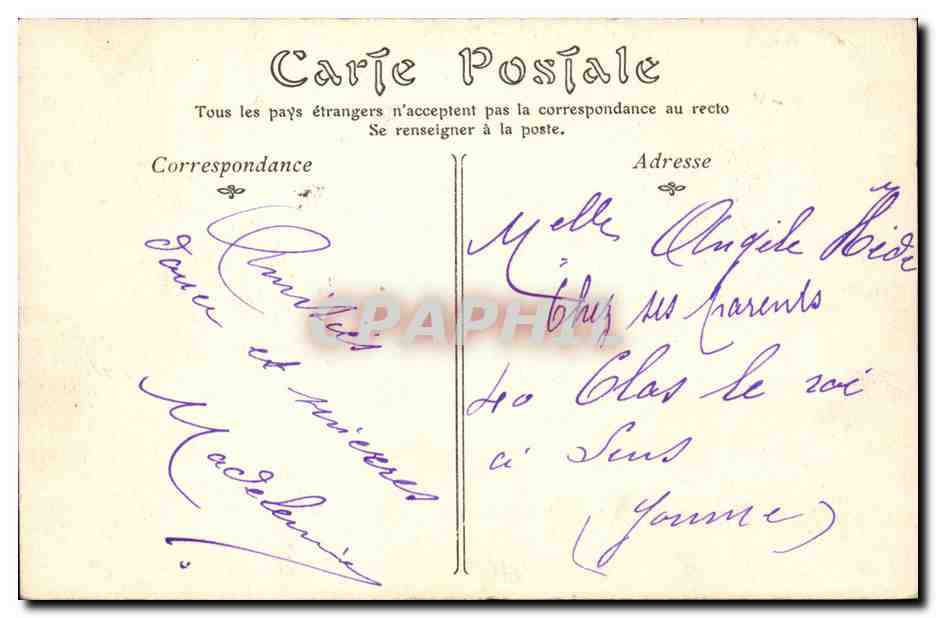 Carte Postale
Tous les pays étrangers n'acceptent pas la correspondance au recto
Se renseigner à la poste.
Correspondance
Adresse
Amitiés
douces et sincères
Madeleine
Melle Angèle
Chez ses parents
40 Clos le roi
à Sens
(Yonne)
CPAPHIL